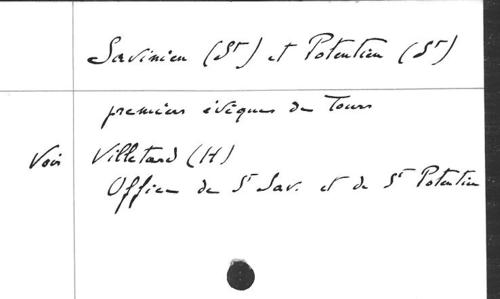 Savinien (St) et Potentien (St)
premiers évêques de Tours
Voir Villetard (H)
Office de St Sav. et de St Potentien